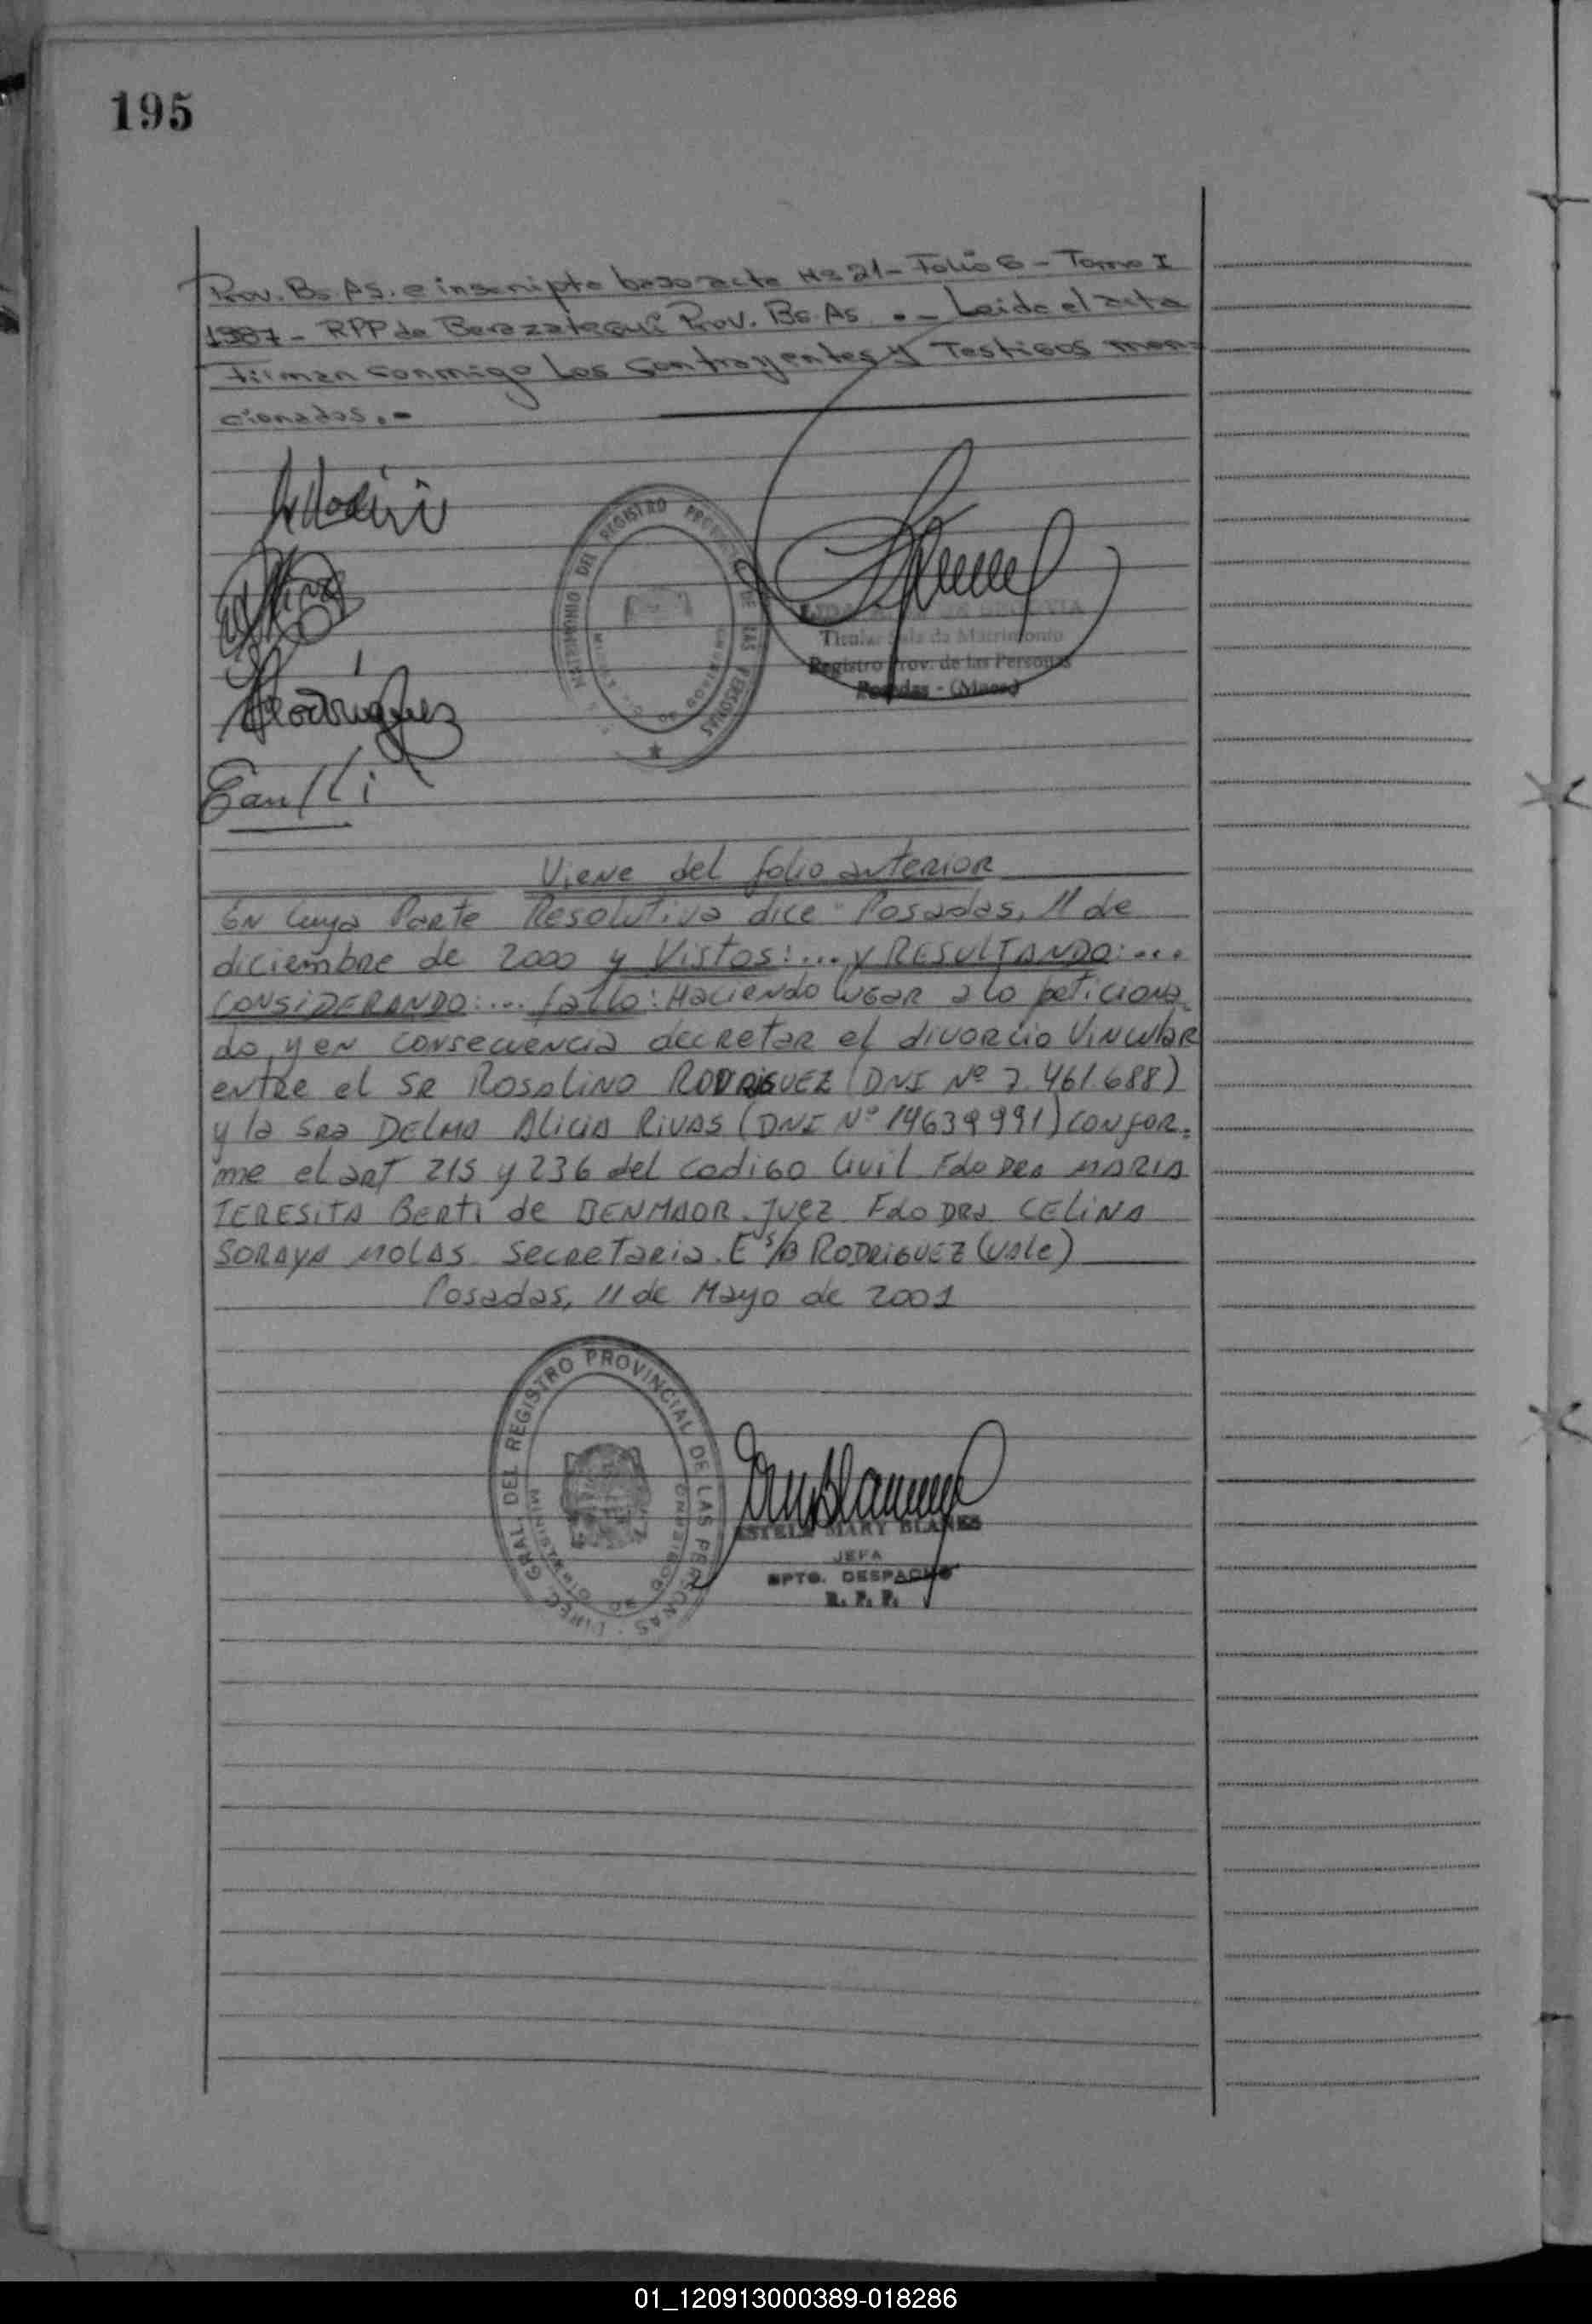 195
Prov. Bs. As. e inscripto bajo acta Nº 21 - Folio 6 - Tomo I
1987 - RPP de Berazategui Prov. Bs. As. . - Leida el acta
firman conmigo Los Contrayentes y Testigos men-
cionados. -
MATRIMONIO DEL REGISTRO DE LAS PERSONAS
Titular Sala de Matrimonio
Registro Prov. de las Personas
Posadas - (Mnes)
Rodriguez
Viene del folio anterior
EN Cuya Parte Resolutiva dice "Posadas, 11 de
diciembre de 2000 y Vistos: ... y RESULTANDO: ...
CONSIDERANDO: ... fallo: Haciendo lugar a lo peticiona
do, y en consecuencia decretar el divorcio Vincular
entre el SR Rosalino RODRIGUEZ (DNI Nº 7.461.688)
y la Sra DELMA Alicia RIVAS (DNI Nº 14639991) confor-
me el art 215 y 236 del Codigo Civil Fdo Dra MARIA
TERESITA Berti de BENMAOR. Juez Fdo Dra CELINA
SORAYA MOLAS Secretaria. E s/B RODRIGUEZ (vale)
Posadas, 11 de Mayo de 2001
DIREC. GRAL. DEL REGISTRO PROVINCIAL DE LAS PERSONAS
MINISTERIO DE GOBIERNO
ESTELA MARY BLANES
JEFA
DPTO. DESPACHO
R. P. P.
01_120913000389-018286